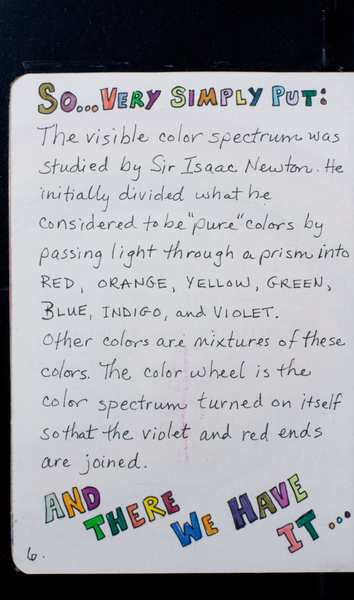 SO...VERY SIMPLY PUT:
The visible color spectrum was
studied by Sir Isaac Newton. He
initially divided what he
considered to be "pure" colors by
passing light through a prism into
RED, ORANGE, YELLOW, GREEN,
BLUE, INDIGO, and VIOLET.
Other colors are mixtures of these
colors. The color wheel is the
color spectrum turned on itself
so that the violet and red ends
are joined.
AND
THERE
WE HAVE
IT...
6.